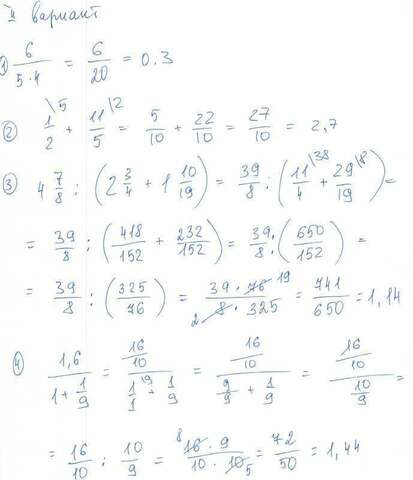 II вариант
① 6/(5·4) = 6/20 = 0.3
② 1\5/2 + 11\2/5 = 5/10 + 22/10 = 27/10 = 2,7
③ 4 7/8 : (2 3/4 + 1 10/19) = 39/8 : (11\38/4 + 29\8/19) =
= 39/8 : (418/152 + 232/152) = 39/8 : (650/152) =
= 39/8 : (325/76) = (39 · 76 19)/(2 8 · 325) = 741/650 = 1,14
④ 1,6/(1 + 1/9) = (16/10)/(1\9/1 + 1/9) = (16/10)/(9/9 + 1/9) = (16/10)/(10/9) =
= 16/10 : 10/9 = (8 16 · 9)/(10 · 10 5) = 72/50 = 1,44